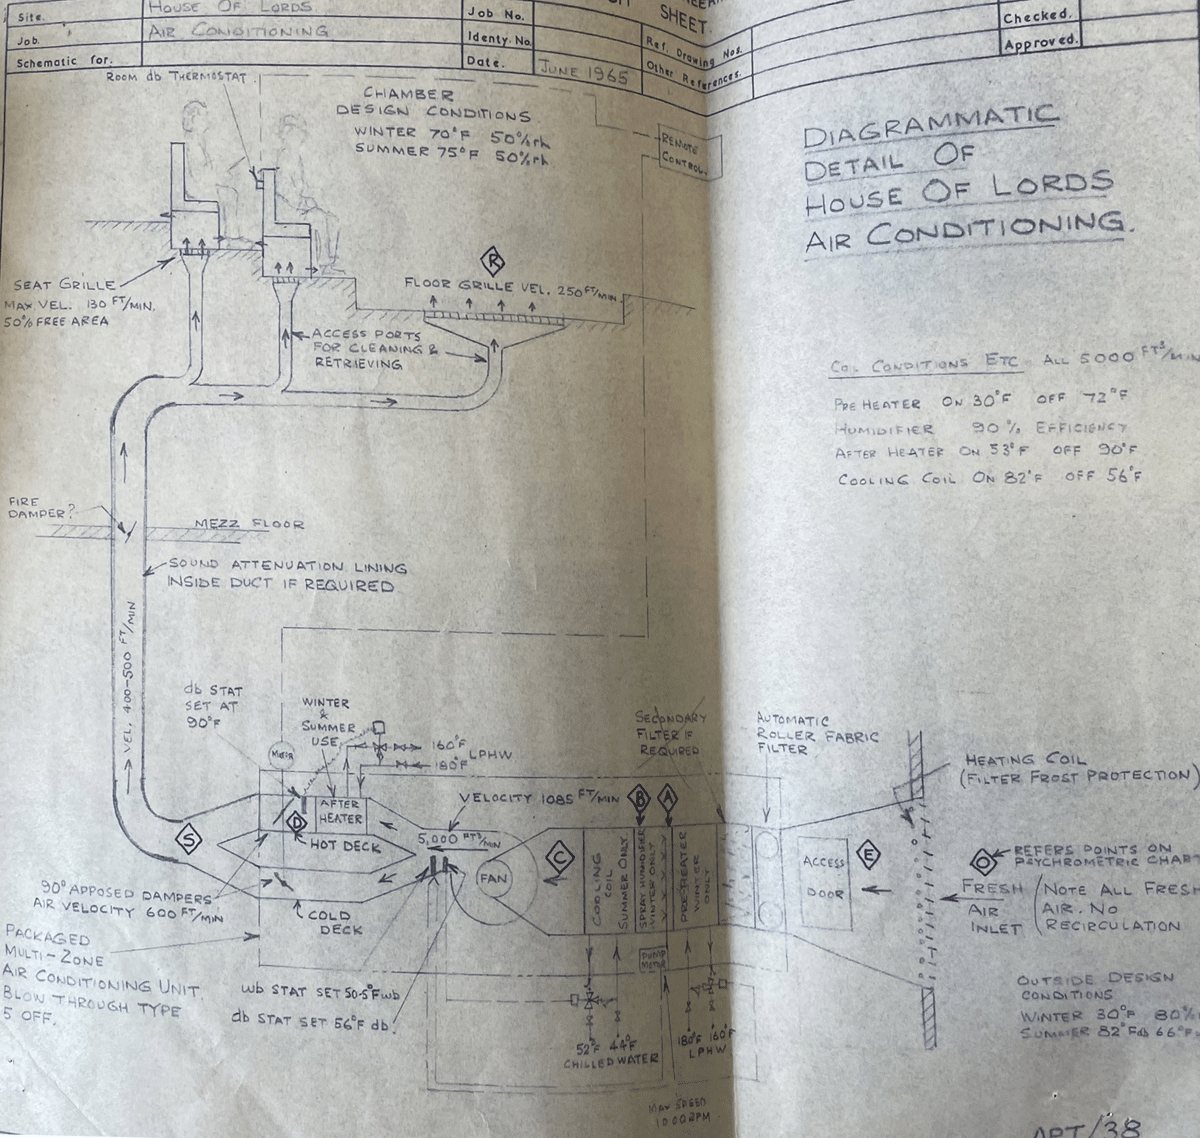 SHEET.
Site. House Of Lords
Job. Air Conditioning
Schematic for.
Job No.
Identy. No.
Date. June 1965
Ref. Drawing Nos.
Other References.
Checked.
Approved.
ROOM db THERMOSTAT.
CHAMBER
DESIGN CONDITIONS
WINTER 70°F 50% rh
SUMMER 75°F 50% rh
REMOTE
CONTROL.
DIAGRAMMATIC
DETAIL OF
HOUSE OF LORDS
AIR CONDITIONING.
SEAT GRILLE
MAX VEL. 130 FT/MIN.
50% FREE AREA
R
FLOOR GRILLE VEL. 250 FT/MIN.
ACCESS PORTS
FOR CLEANING &
RETRIEVING
COIL CONDITIONS ETC ALL 5000 FT³/MIN
PRE HEATER ON 30°F OFF 72°F
HUMIDIFIER 90% EFFICIENCY
AFTER HEATER ON 53°F OFF 90°F
COOLING COIL ON 82°F OFF 56°F
FIRE
DAMPER?
MEZZ FLOOR
SOUND ATTENUATION LINING
INSIDE DUCT IF REQUIRED
VEL. 400-500 FT/MIN
db STAT
SET AT
90°F
WINTER
&
SUMMER
USE
160°F
180°F
LPHW
SECONDARY
FILTER IF
REQUIRED
AUTOMATIC
ROLLER FABRIC
FILTER
HEATING COIL
(FILTER FROST PROTECTION)
Motr
AFTER
HEATER
D
HOT DECK
S
VELOCITY 1085 FT/MIN
5,000 FT³/MIN
FAN
C
COOLING
COIL
SUMMER ONLY
SPRAY HUMIDIFIER
WINTER ONLY
B
A
PREHEATER
WINTER
ONLY
ACCESS
DOOR
E
O
REFERS POINTS ON
PSYCHROMETRIC CHART
FRESH
AIR
INLET
(NOTE ALL FRESH
AIR. NO
RECIRCULATION
90° APPOSED DAMPERS
AIR VELOCITY 600 FT/MIN
COLD
DECK
PACKAGED
MULTI-ZONE
AIR CONDITIONING UNIT.
BLOW THROUGH TYPE
5 OFF.
wb STAT SET 50.5°F wb
db STAT SET 56°F db.
PUMP
MOTOR
52°F 44°F
CHILLED WATER
180°F 160°F
LPHW
OUTSIDE DESIGN
CONDITIONS
WINTER 30°F 80%
SUMMER 82°F db 66°F
MAX SPEED
1000 RPM
APT/38